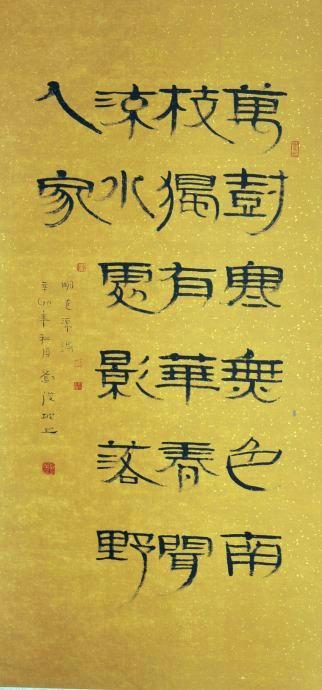 萬尌寒無色南
枝獨有華香聞
流水處影落野
人家
明道源詩
辛卯年秋月